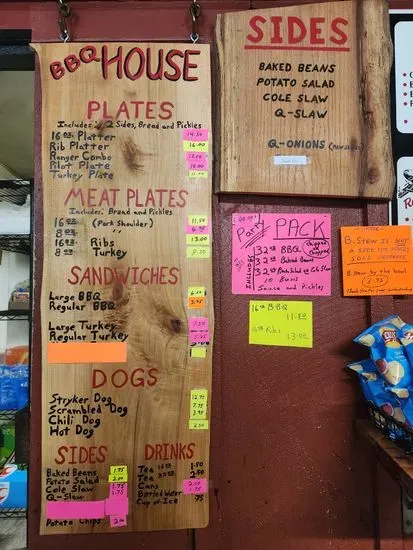 BBQ HOUSE
PLATES
Includes: 2 Sides, Bread and Pickles
16 oz. Platter 14.50
Rib Platter 16.00
Ranger Combo
Pilot Plate 10.00
Turkey Plate 11.00
MEAT PLATES
Includes: Bread and Pickles
16 oz. (Pork Shoulder) 11.50
8 oz. " 6.75
16 oz. Ribs 13.00
8 oz. Turkey 8.50
SANDWICHES
Large BBQ
Regular BBQ
Large Turkey 7.50
Regular Turkey
DOGS
Stryker Dog 12.75
Scrambled Dog 7.75
Chili Dog 3.75
Hot Dog 2.50
SIDES
Baked Beans 1.75
Potato Salad 2.00
Cole Slaw 1.75
Q-Slaw 1.75
Potato Chips 2.00
DRINKS
Tea 16 oz 1.50
Tea 32 oz. 2.50
Cans 2.00
Bottled Water
Cup of Ice .75
SIDES
BAKED BEANS
POTATO SALAD
COLE SLAW
Q-SLAW
Q-ONIONS
Party PACK
INCLUDES
32 oz BBQ
32 oz Baked Beans
32 oz Potato Salad or Cole Slaw
10 Buns
Sauce and Pickles
16 oz B-B-Q
11.50
16 oz Ribs
13.00
B. STEW IS NOT
A SIDE FOR PLATES
SOLD SEPARATE
B. Stew by the bowl
3.75
Lay's